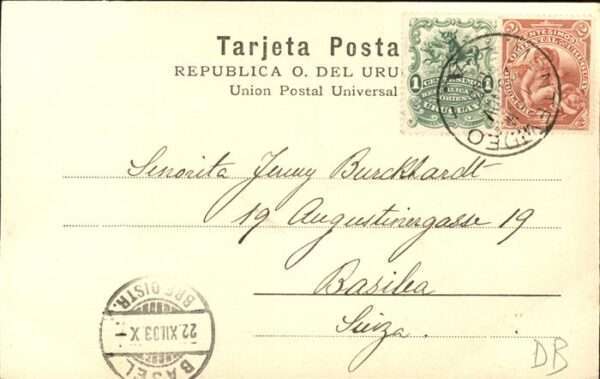 Tarjeta Posta
REPUBLICA O. DEL URU
Union Postal Universal
1 CENTESIMO 1
REPUBLICA
ORIENTAL
URUGUAY
2 CENTESIMOS 2
Señorita Jenny Burckhardt
19 Augustinergasse 19
Basilea
Suiza.
BASEL
22.XII.03.X
BRF. DISTR.
DB